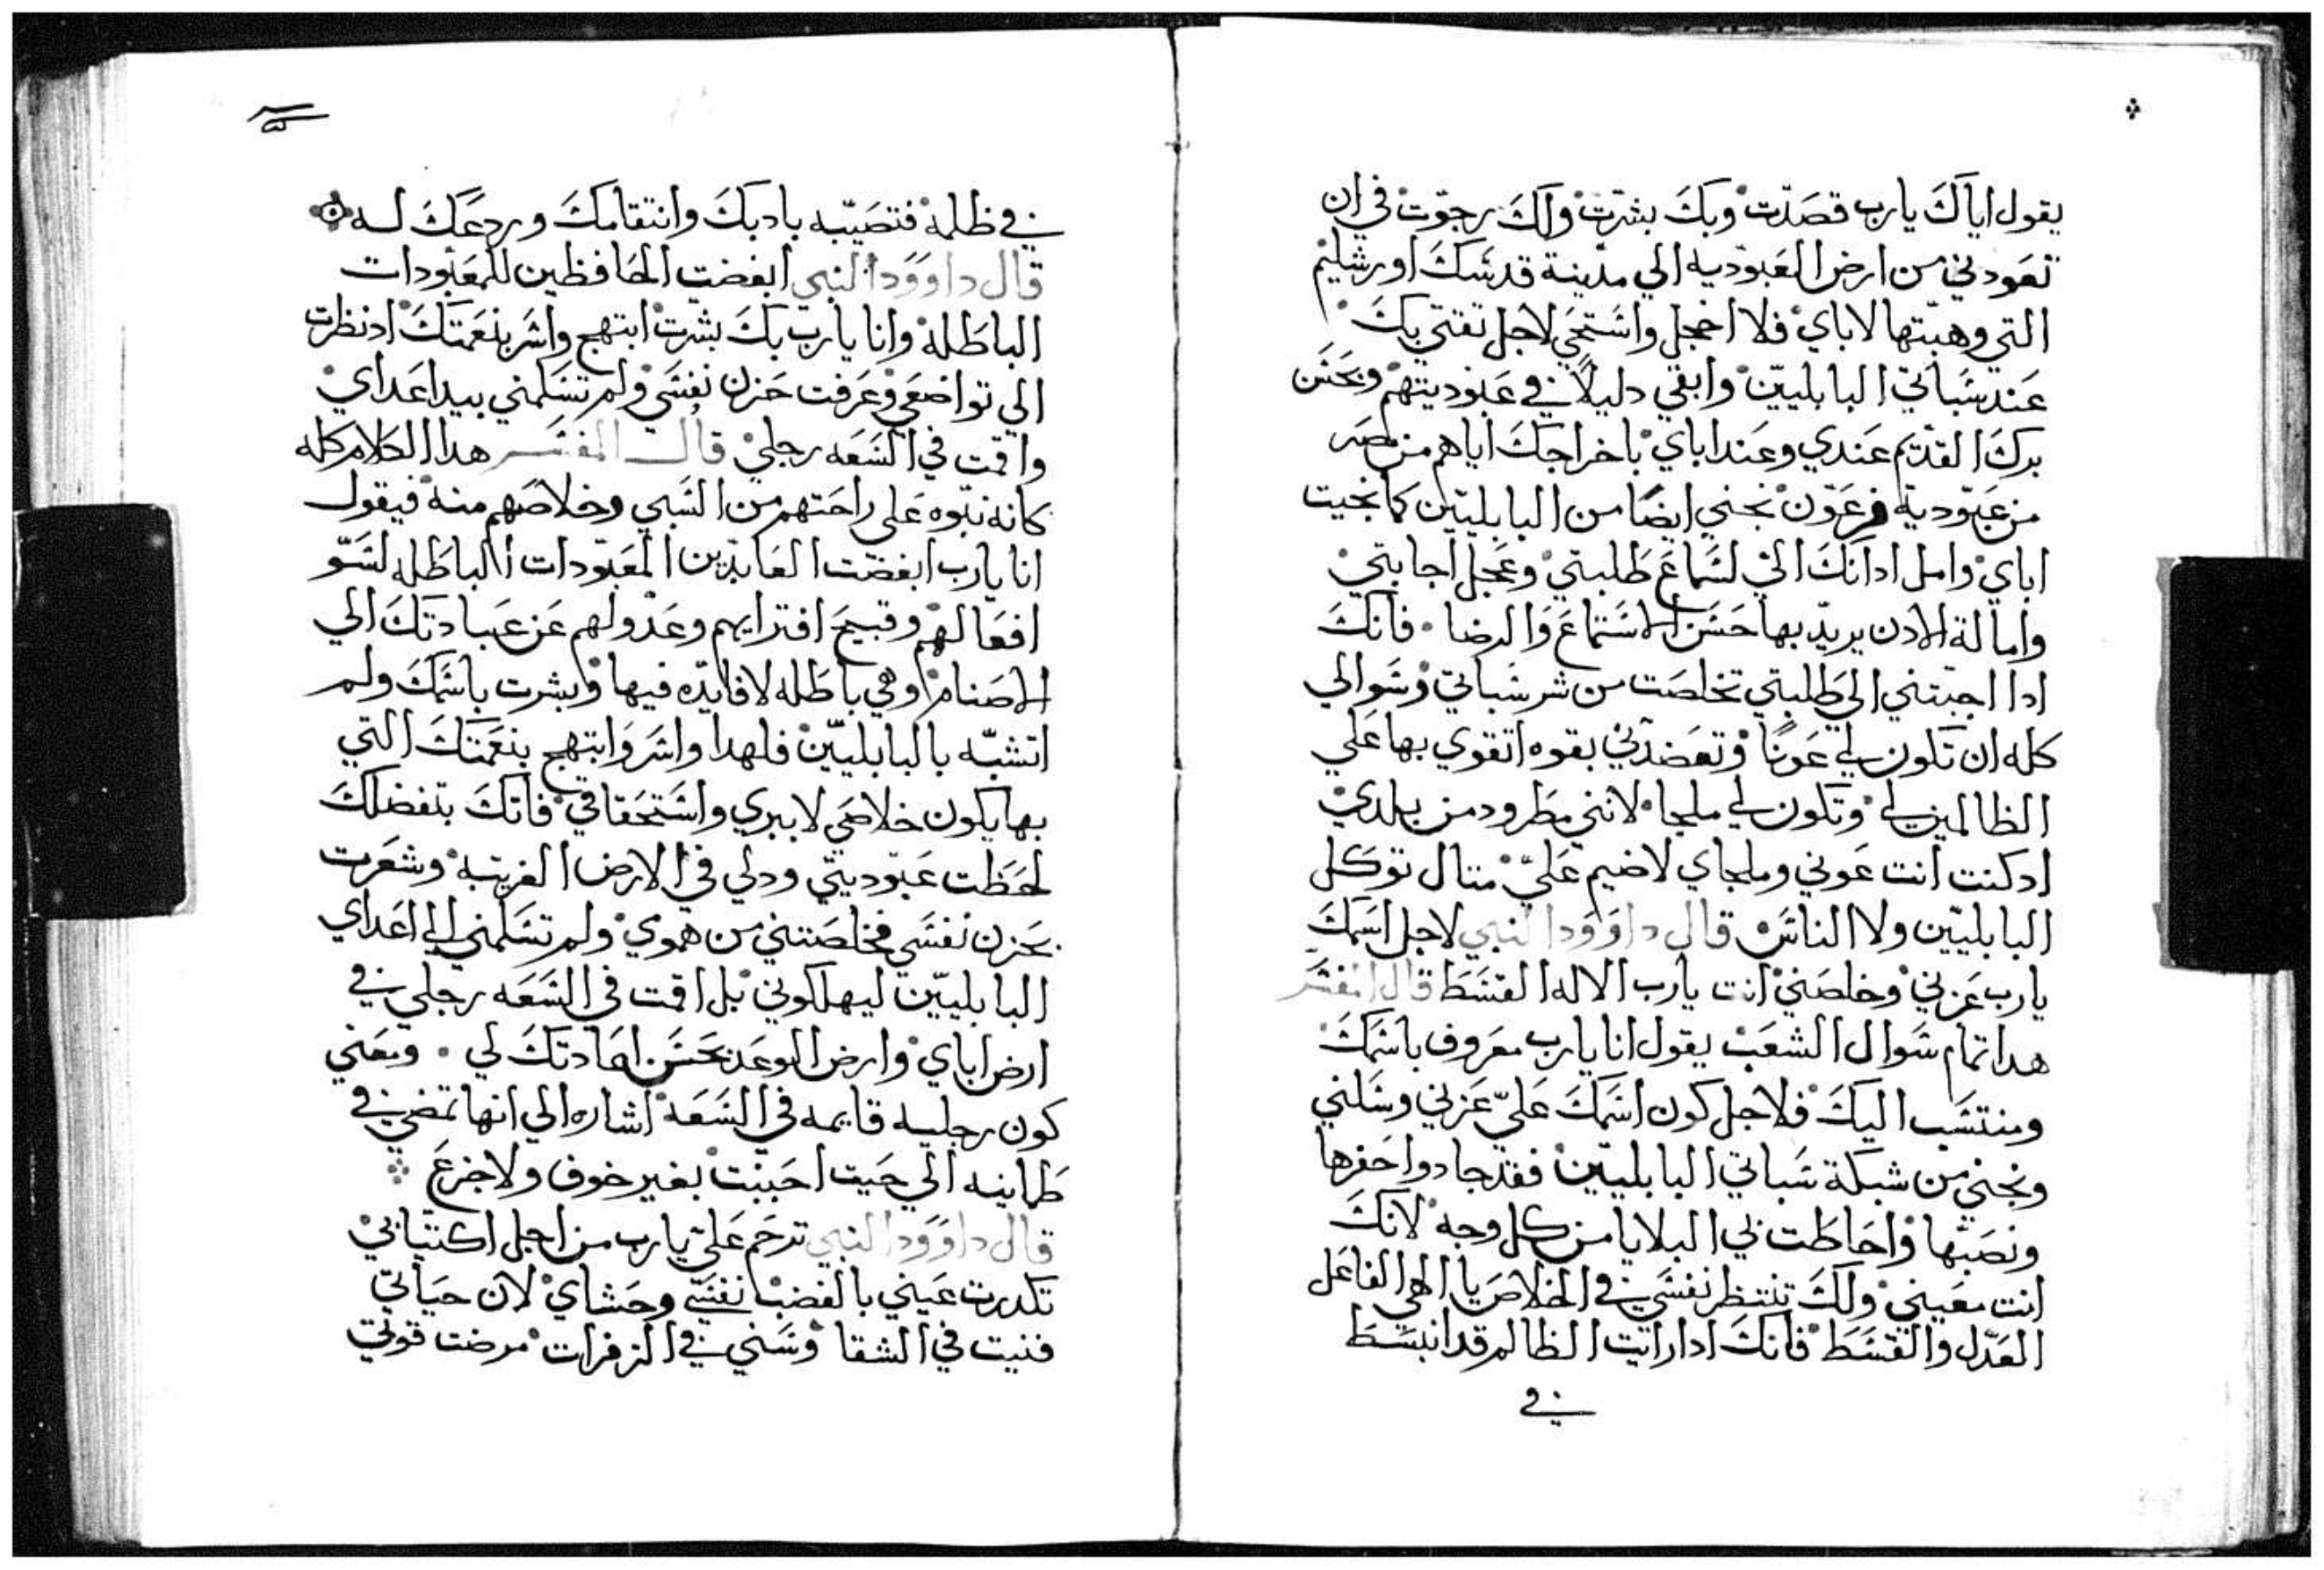 يقول اياك يارب قصدت وبك بشرت ولك رجوت في ان
تعودني من ارض العبوديه الي مدينة قدسك اورشليم
التي وهبتها لاباي فلا اخجل واستحي لاجل تقتي بك
عند سباتي البابليين وابقي دليلاً في عبوديتهم وبحسن
برك القديم عندي وعند اباي باخراجك اياهم من مصر
من عبودية فرعون نجني ايضا من البابليين كما نجيت
اباي وامل ادانك الي لسماع طلبتي وعجل اجابتي
وامالة الادن يريد بها حسن الاستماع والرضا . فانك
ادا اجبتني الي طلبتي تخلصت من شر سباتي وسوالي
كله ان تكون لي عونًا وتعضدني بقوه اتقوي بها علي
الظالمين لي وتكون لي ملجا لانني مطرود من بلدي
ادكنت انت عوني وملجاي لاضيم عليّ متال توكل
البابليين ولا الناس قال داوود النبي لاجل اسمك
يارب عزني وخلصني انت يارب الاله القسط قال المفسر
هدا تمام سوال الشعب يقول انا يارب معروف باسمك
ومنتسب اليك فلاجل كون اسمك عليّ عزني وسلني
ونجني من شبكة سباتي البابليين فقد جادوا حفرها
ونصبها واحاطت بي البلايا من كل وجه لانك
انت معيني ولك تنتظر نفسي في الخلاص يا الهي الفاعل
العدل والقسط فانك ادا رايت الظالم قد انبسط
في
في ظلمه فتصيبه بادبك وانتقامك وردعك له
قال داوود النبي ابغضت الحافظين للمعبودات
الباطله وانا يارب بك بشرت ابتهج واسر بنعمتك ادنظرت
الي تواضعي وعرفت حزن نفسي ولم تسلمني بيد اعداي
واقمت في السعه رجلي قال المفسر هدا الكلام كله
كانه نبوه علي راحتهم من السبي وخلاصهم منه فيقول
انا يارب ابغضت العابدين المعبودات الباطله لسو
افعالهم وقبيح افترايهم وعدولهم عن عبادتك الي
الاصنام وهي باطله لا فايده فيها وبشرت باسمك ولم
اتشبه بالبابليين فلهدا واسر وابتهج بنعمتك التي
بها يكون خلاصي لا ببري واستحقاقي فانك بتفضلك
لحظت عبوديتي ودلي في الارض الغريبه وشعرت
بحزن نفسي فخلصتني من همومي ولم تسلمني الي اعداي
البابليين ليهلكوني بل اقمت في السعه رجلي في
ارض اباي وارض الوعد بحسن اعادتك لي . ومعني
كون رجليه قايمه في السعه اشاره الي انها تمضي في
طمانينه الي حيت احببت بغير خوف ولا جزع
قال داوود النبي ترحم عليّ يارب من اجل اكتيابي
تكدرت عيني بالغضب نفسي وحشاي لان حياتي
فنيت في الشقا وسني في الزفرات مرضت قوتي